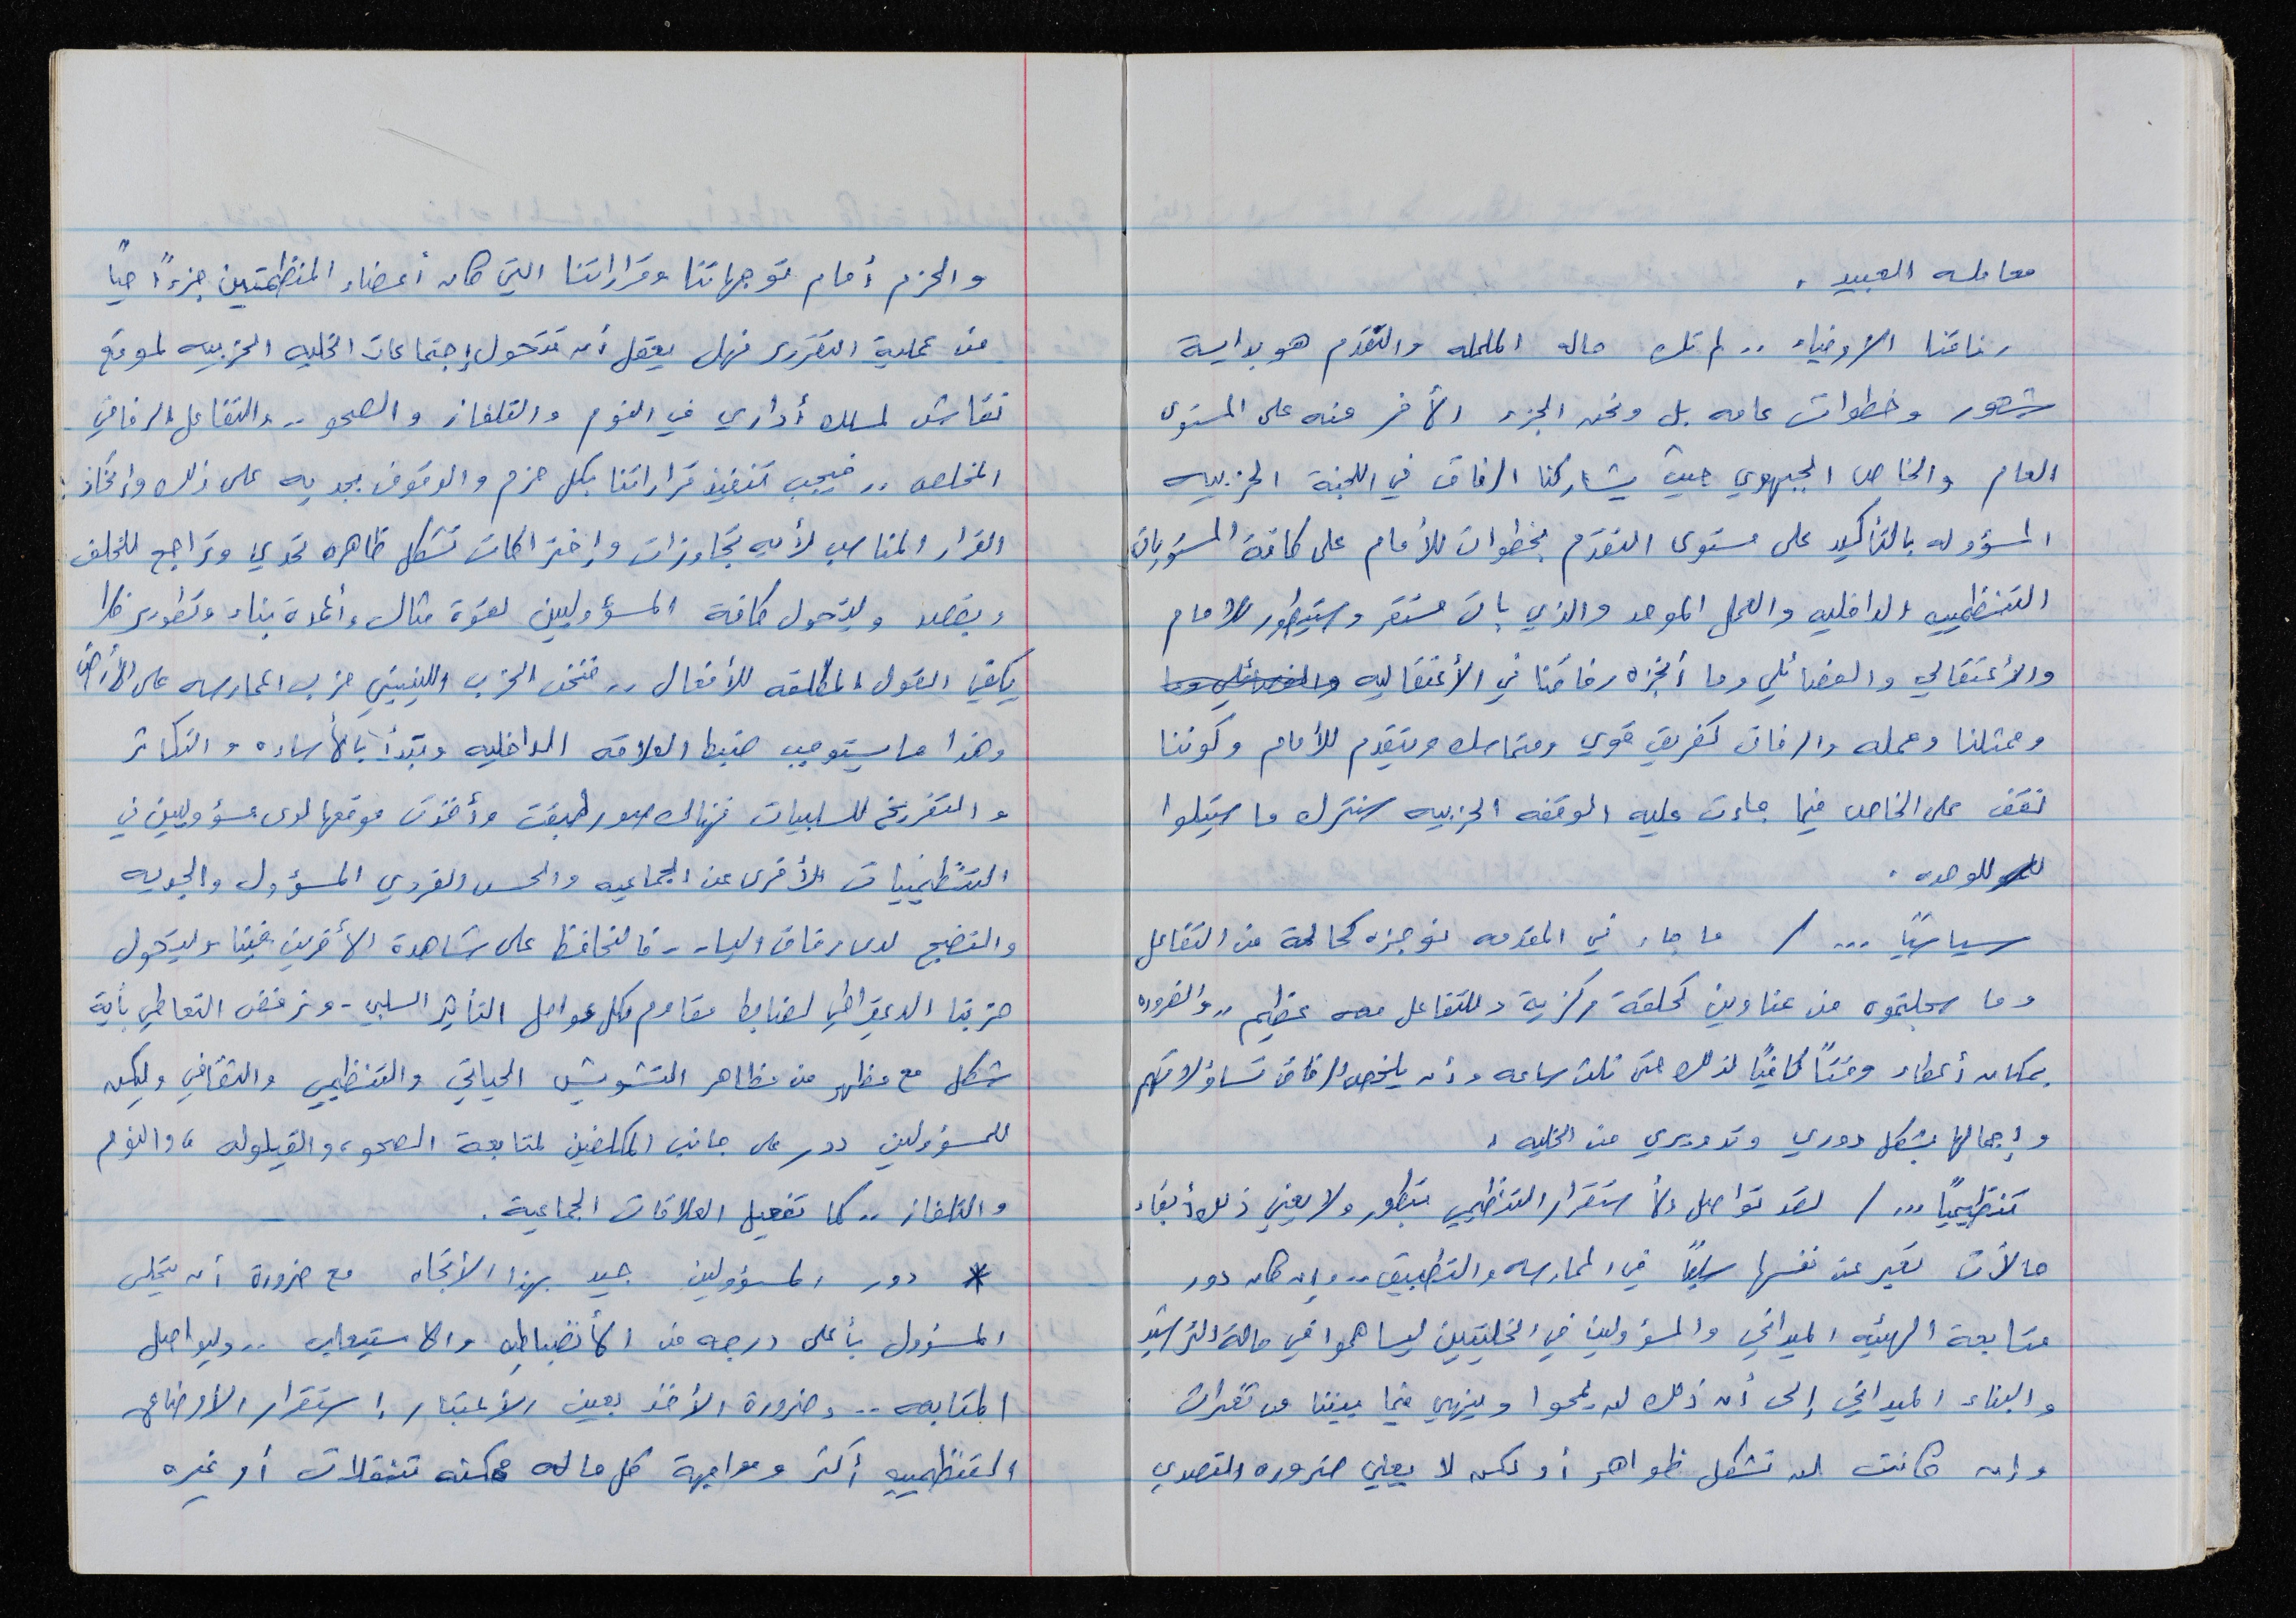 معامله العبيد .
رفاقنا الأوفياء .. لم تك حاله الململه والتقدم هو بداية
شهور وخطوات عامه بل ونحن الجزء الأخر منه على المستوى
العام والخاص الجبهوي حيث يشاركنا الرفاق في اللجنة الحزبيه
المسؤوله بالتأكيد على مستوى التقدم بخطوات للأمام على كافة المستويات
التنظيميه الداخليه والعمل الموحد والذي بات مستقر وسيتطور للامام
والأعتقالي والفصائلي وما أنجزه رفاقنا في الأعتقاليه
وممثلنا وعمله والرفاق كفريق قوي ومتماسك ويتقدم للأمام وكوننا
نقف على الخاص فيما جاءت عليه الوقفه الحزبيه سنترك ما سيتلوا
للوحده .
سياسيًا ... / ما جاء في المقدمه نوجزه كحالة من التفاعل
وما سجلتموه من عناوين كحلقة مركزية وللتفاعل معه عظيم .. والضروره
بمكان أعطاء وقتًا كافيًا لذلك حتى ثلث ساعه وأن يلخص الرفاق تساؤلاتهم
وإجمالها بشكل دوري وتدويري من الخليه .
تنظيميًا ... / لقد تواصل الأستقرار التنظيمي بتطور ولا يعني ذلك أبقاء
حالات تعبر عن نفسها سلبًا في الممارسه والتطبيق .. وإن كان دور
متابعة الهيئه الميداني والمسؤولين في الخليتين ليساهموا في حالة الترشيد
والبناء الميداني إلى أن ذلك لن يمحوا وينهي فيما بيننا من تغيرات
وإن كانت لن تشكل ظواهر أو لكن لا يعني ضروره التصدي
والحزم أمام توجهاتنا وقراراتنا التي كان أعضاء المنظمتين جزءاً حياً
من عملية التقرير فهل يعقل أن تتحول إجتماعات الخليه الحزبيه لموقع
نقاش لمسلك أداري في النوم والتلفاز والصحو .. والتفاعل الرفاقي
المخلص .. فيجب تنفيذ قراراتنا بكل حزم والوقوف بجديه على ذلك وإتخاذ
القرار المناسب لأيه تجاوزات وإختراكات تشكل ظاهره تحدي وتراجع للخلف
وبقصد وليتحول كافة المسؤولين لقوة مثال وأعمدة بناء وتطوير فلا
يكفي القول المطلقه للأفعال .. فنحن الحزب اللينيني حزب الممارسه على الأرض
وهذا ما يستوجب ضبط العلاقه الداخليه وتبدأ بالأساءه والتكاثر
والتفريخ للسلبيات فهناك صور طبقت وأخذت موقعها لدى مسؤولين في
التنظيميات الأخرى عن الجماعيه والحس الفردي المسؤول والجديه
والنضج لدى رفاق اليسار .. فالنحافظ على شاهدة الأخرين فينا وليتحول
حزبنا الديمقراطي لضابط مقاوم لكل عوامل التأثير السلبي - ونرفض التعاطي بأية
شكل مع مظهر من مظاهر التشويش الحياتي والتنظيمي والثقافي وليكن
للمسؤولين دور على جانب المكلفين لمتابعة الصحو ، والقيلوله ، والنوم
والتلفاز .. كما تفعيل العلاقات الجماعية .
* دور المسؤولين جيد بهذا الأتجاه مع ضرورة أن يتحلى
المسؤول بأعلى درجه من الأنضباطيه والاستيعاب .. وليواصل
المتابعه .. وضرورة الأخذ بعين الأعتبار إستقرار الأوضاع
التنظيميه أكثر ومواجهة كل حاله ممكنه تنقلات أو غيره